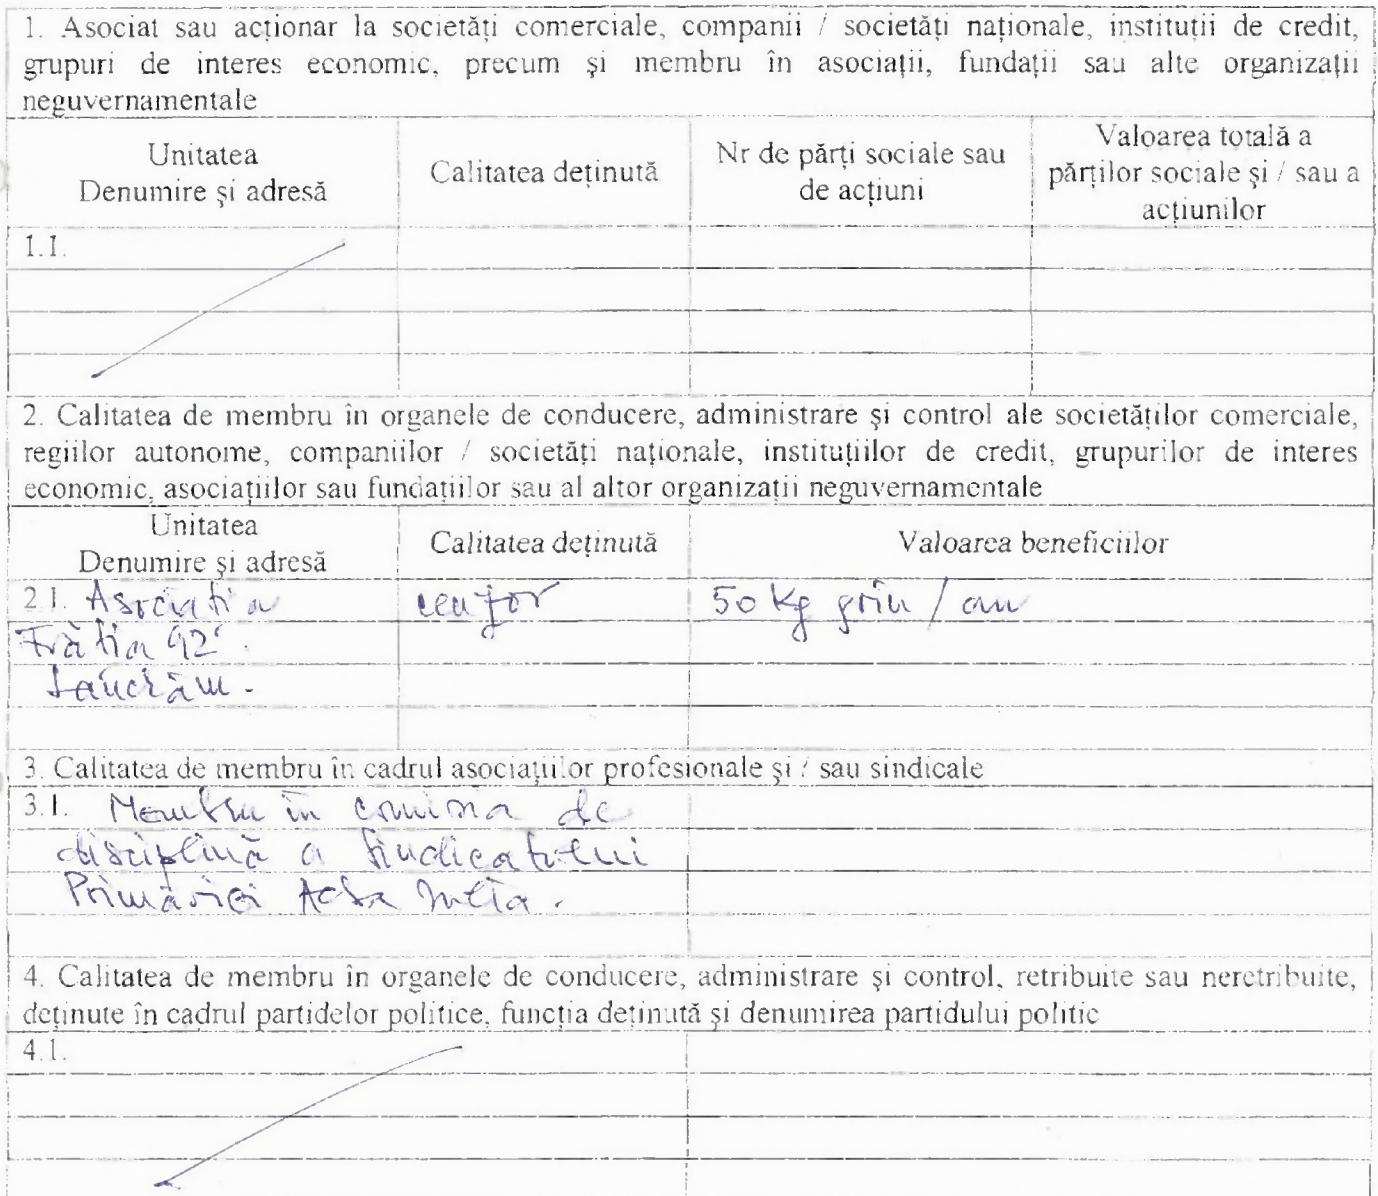 1. Asociat sau acționar la societăți comerciale, companii / societăți naționale, instituții de credit,
grupuri de interes economic, precum și membru în asociații, fundații sau alte organizații
neguvernamentale
Unitatea
Denumire și adresă
Calitatea deținută
Nr de părți sociale sau
de acțiuni
Valoarea totală a
părților sociale și / sau a
acțiunilor
1.1.
2. Calitatea de membru în organele de conducere, administrare și control ale societăților comerciale,
regiilor autonome, companiilor / societăți naționale, instituțiilor de credit, grupurilor de interes
economic, asociațiilor sau fundațiilor sau al altor organizații neguvernamentale
Unitatea
Denumire și adresă
Calitatea deținută
Valoarea beneficiilor
2.1. Asociatia cenzor 50 kg grîu / an
Frăția 92'.
Lancrăm.
3. Calitatea de membru în cadrul asociațiilor profesionale și / sau sindicale
3.1. Membru în comisia de
disciplină a sindicatului
Primăriei Alba Iulia.
4. Calitatea de membru în organele de conducere, administrare și control, retribuite sau neretribuite,
deținute în cadrul partidelor politice, funcția deținută și denumirea partidului politic
4.1.